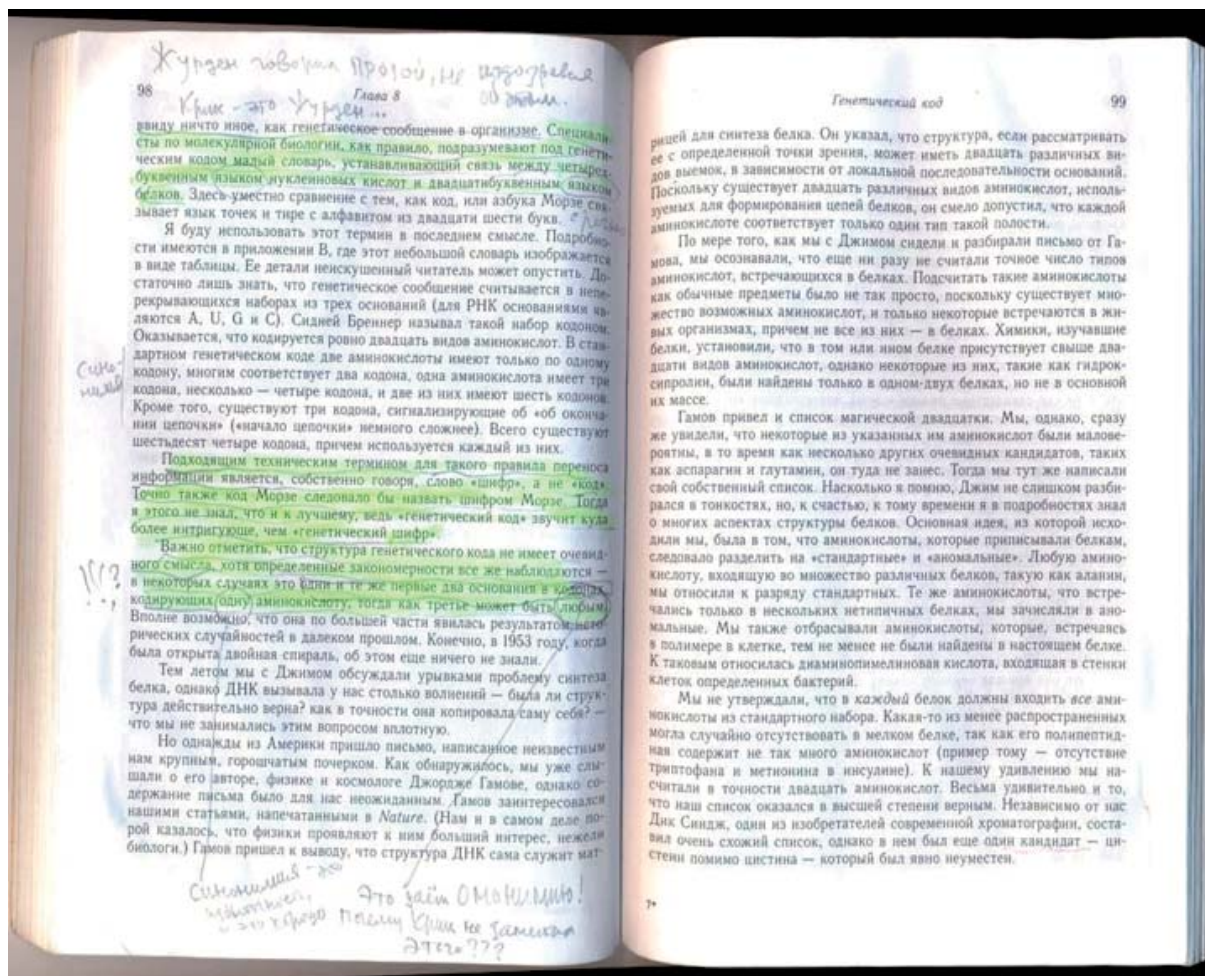 Журден говорил прозой, не подозревая
об этом.
98
Глава 8
Крик - это Журден...
ввиду ничто иное, как генетическое сообщение в организме. Специали-
сты по молекулярной биологии, как правило, подразумевают под генети-
ческим кодом малый словарь, устанавливающий связь между четырех-
буквенным языком нуклеиновых кислот и двадцатибуквенным языком
белков. Здесь уместно сравнение с тем, как код, или азбука Морзе свя-
зывает язык точек и тире с алфавитом из двадцати шести букв.
Я буду использовать этот термин в последнем смысле. Подробно-
сти имеются в приложении В, где этот небольшой словарь изображается
в виде таблицы. Ее детали неискушенный читатель может опустить. До-
статочно лишь знать, что генетическое сообщение считывается в непе-
рекрывающихся наборах из трех оснований (для РНК основаниями яв-
ляются A, U, G и C). Сидней Бреннер называл такой набор кодоном.
Оказывается, что кодируется ровно двадцать видов аминокислот. В стан-
дартном генетическом коде две аминокислоты имеют только по одному
кодону, многим соответствует два кодона, одна аминокислота имеет три
кодона, несколько — четыре кодона, и две из них имеют шесть кодонов.
Кроме того, существуют три кодона, сигнализирующие об «об оконча-
нии цепочки» («начало цепочки» немного сложнее). Всего существуют
шестьдесят четыре кодона, причем используется каждый из них.
Подходящим техническим термином для такого правила переноса
информации является, собственно говоря, слово «шифр», а не «код».
Точно также код Морзе следовало бы назвать шифром Морзе. Тогда
я этого не знал, что и к лучшему, ведь «генетический код» звучит куда
более интригующе, чем «генетический шифр».
Важно отметить, что структура генетического кода не имеет очевид-
ного смысла, хотя определенные закономерности все же наблюдаются —
в некоторых случаях это одни и те же первые два основания в кодонах,
кодирующих одну аминокислоту, тогда как третье может быть любым.
Вполне возможно, что она по большей части явилась результатом исто-
рических случайностей в далеком прошлом. Конечно, в 1953 году, когда
была открыта двойная спираль, об этом еще ничего не знали.
Тем летом мы с Джимом обсуждали урывками проблему синтеза
белка, однако ДНК вызывала у нас столько волнений — была ли струк-
тура действительно верна? как в точности она копировала саму себя? —
что мы не занимались этим вопросом вплотную.
Но однажды из Америки пришло письмо, написанное неизвестным
нам крупным, горошчатым почерком. Как обнаружилось, мы уже слы-
шали о его авторе, физике и космологе Джордже Гамове, однако со-
держание письма было для нас неожиданным. Гамов заинтересовался
нашими статьями, напечатанными в Nature. (Нам и в самом деле по-
рой казалось, что физики проявляют к ним больший интерес, нежели
биологи.) Гамов пришел к выводу, что структура ДНК сама служит мат-
Сино-
нимия
!!!?
Синонимия - это
Это даёт ОМОНИМИЮ!
Почему Крик не заметил
этого???
Генетический код
99
рицей для синтеза белка. Он указал, что структура, если рассматривать
ее с определенной точки зрения, может иметь двадцать различных ви-
дов выемок, в зависимости от локальной последовательности оснований.
Поскольку существует двадцать различных видов аминокислот, исполь-
зуемых для формирования цепей белков, он смело допустил, что каждой
аминокислоте соответствует только один тип такой полости.
По мере того, как мы с Джимом сидели и разбирали письмо от Га-
мова, мы осознавали, что еще ни разу не считали точное число типов
аминокислот, встречающихся в белках. Подсчитать такие аминокислоты
как обычные предметы было не так просто, поскольку существует мно-
жество возможных аминокислот, и только некоторые встречаются в жи-
вых организмах, причем не все из них — в белках. Химики, изучавшие
белки, установили, что в том или ином белке присутствует свыше два-
дцати видов аминокислот, однако некоторые из них, такие как гидрок-
сипролин, были найдены только в одном-двух белках, но не в основной
их массе.
Гамов привел и список магической двадцатки. Мы, однако, сразу
же увидели, что некоторые из указанных им аминокислот были малове-
роятны, в то время как несколько других очевидных кандидатов, таких
как аспарагин и глутамин, он туда не занес. Тогда мы тут же написали
свой собственный список. Насколько я помню, Джим не слишком разби-
рался в тонкостях, но, к счастью, к тому времени я в подробностях знал
о многих аспектах структуры белков. Основная идея, из которой исхо-
дили мы, была в том, что аминокислоты, которые приписывали белкам,
следовало разделить на «стандартные» и «аномальные». Любую амино-
кислоту, входящую во множество различных белков, такую как аланин,
мы относили к разряду стандартных. Те же аминокислоты, что встре-
чались только в нескольких нетипичных белках, мы зачисляли в ано-
мальные. Мы также отбрасывали аминокислоты, которые, встречаясь
в полимере в клетке, тем не менее не были найдены в настоящем белке.
К таковым относилась диаминопимелиновая кислота, входящая в стенки
клеток определенных бактерий.
Мы не утверждали, что в каждый белок должны входить все ами-
нокислоты из стандартного набора. Какая-то из менее распространенных
могла случайно отсутствовать в мелком белке, так как его полипептид-
ная содержит не так много аминокислот (пример тому — отсутствие
триптофана и метионина в инсулине). К нашему удивлению мы на-
считали в точности двадцать аминокислот. Весьма удивительно и то,
что наш список оказался в высшей степени верным. Независимо от нас
Дик Синдж, один из изобретателей современной хроматографии, соста-
вил очень схожий список, однако в нем был еще один кандидат — ци-
стеин помимо цистина — который был явно неуместен.
7*